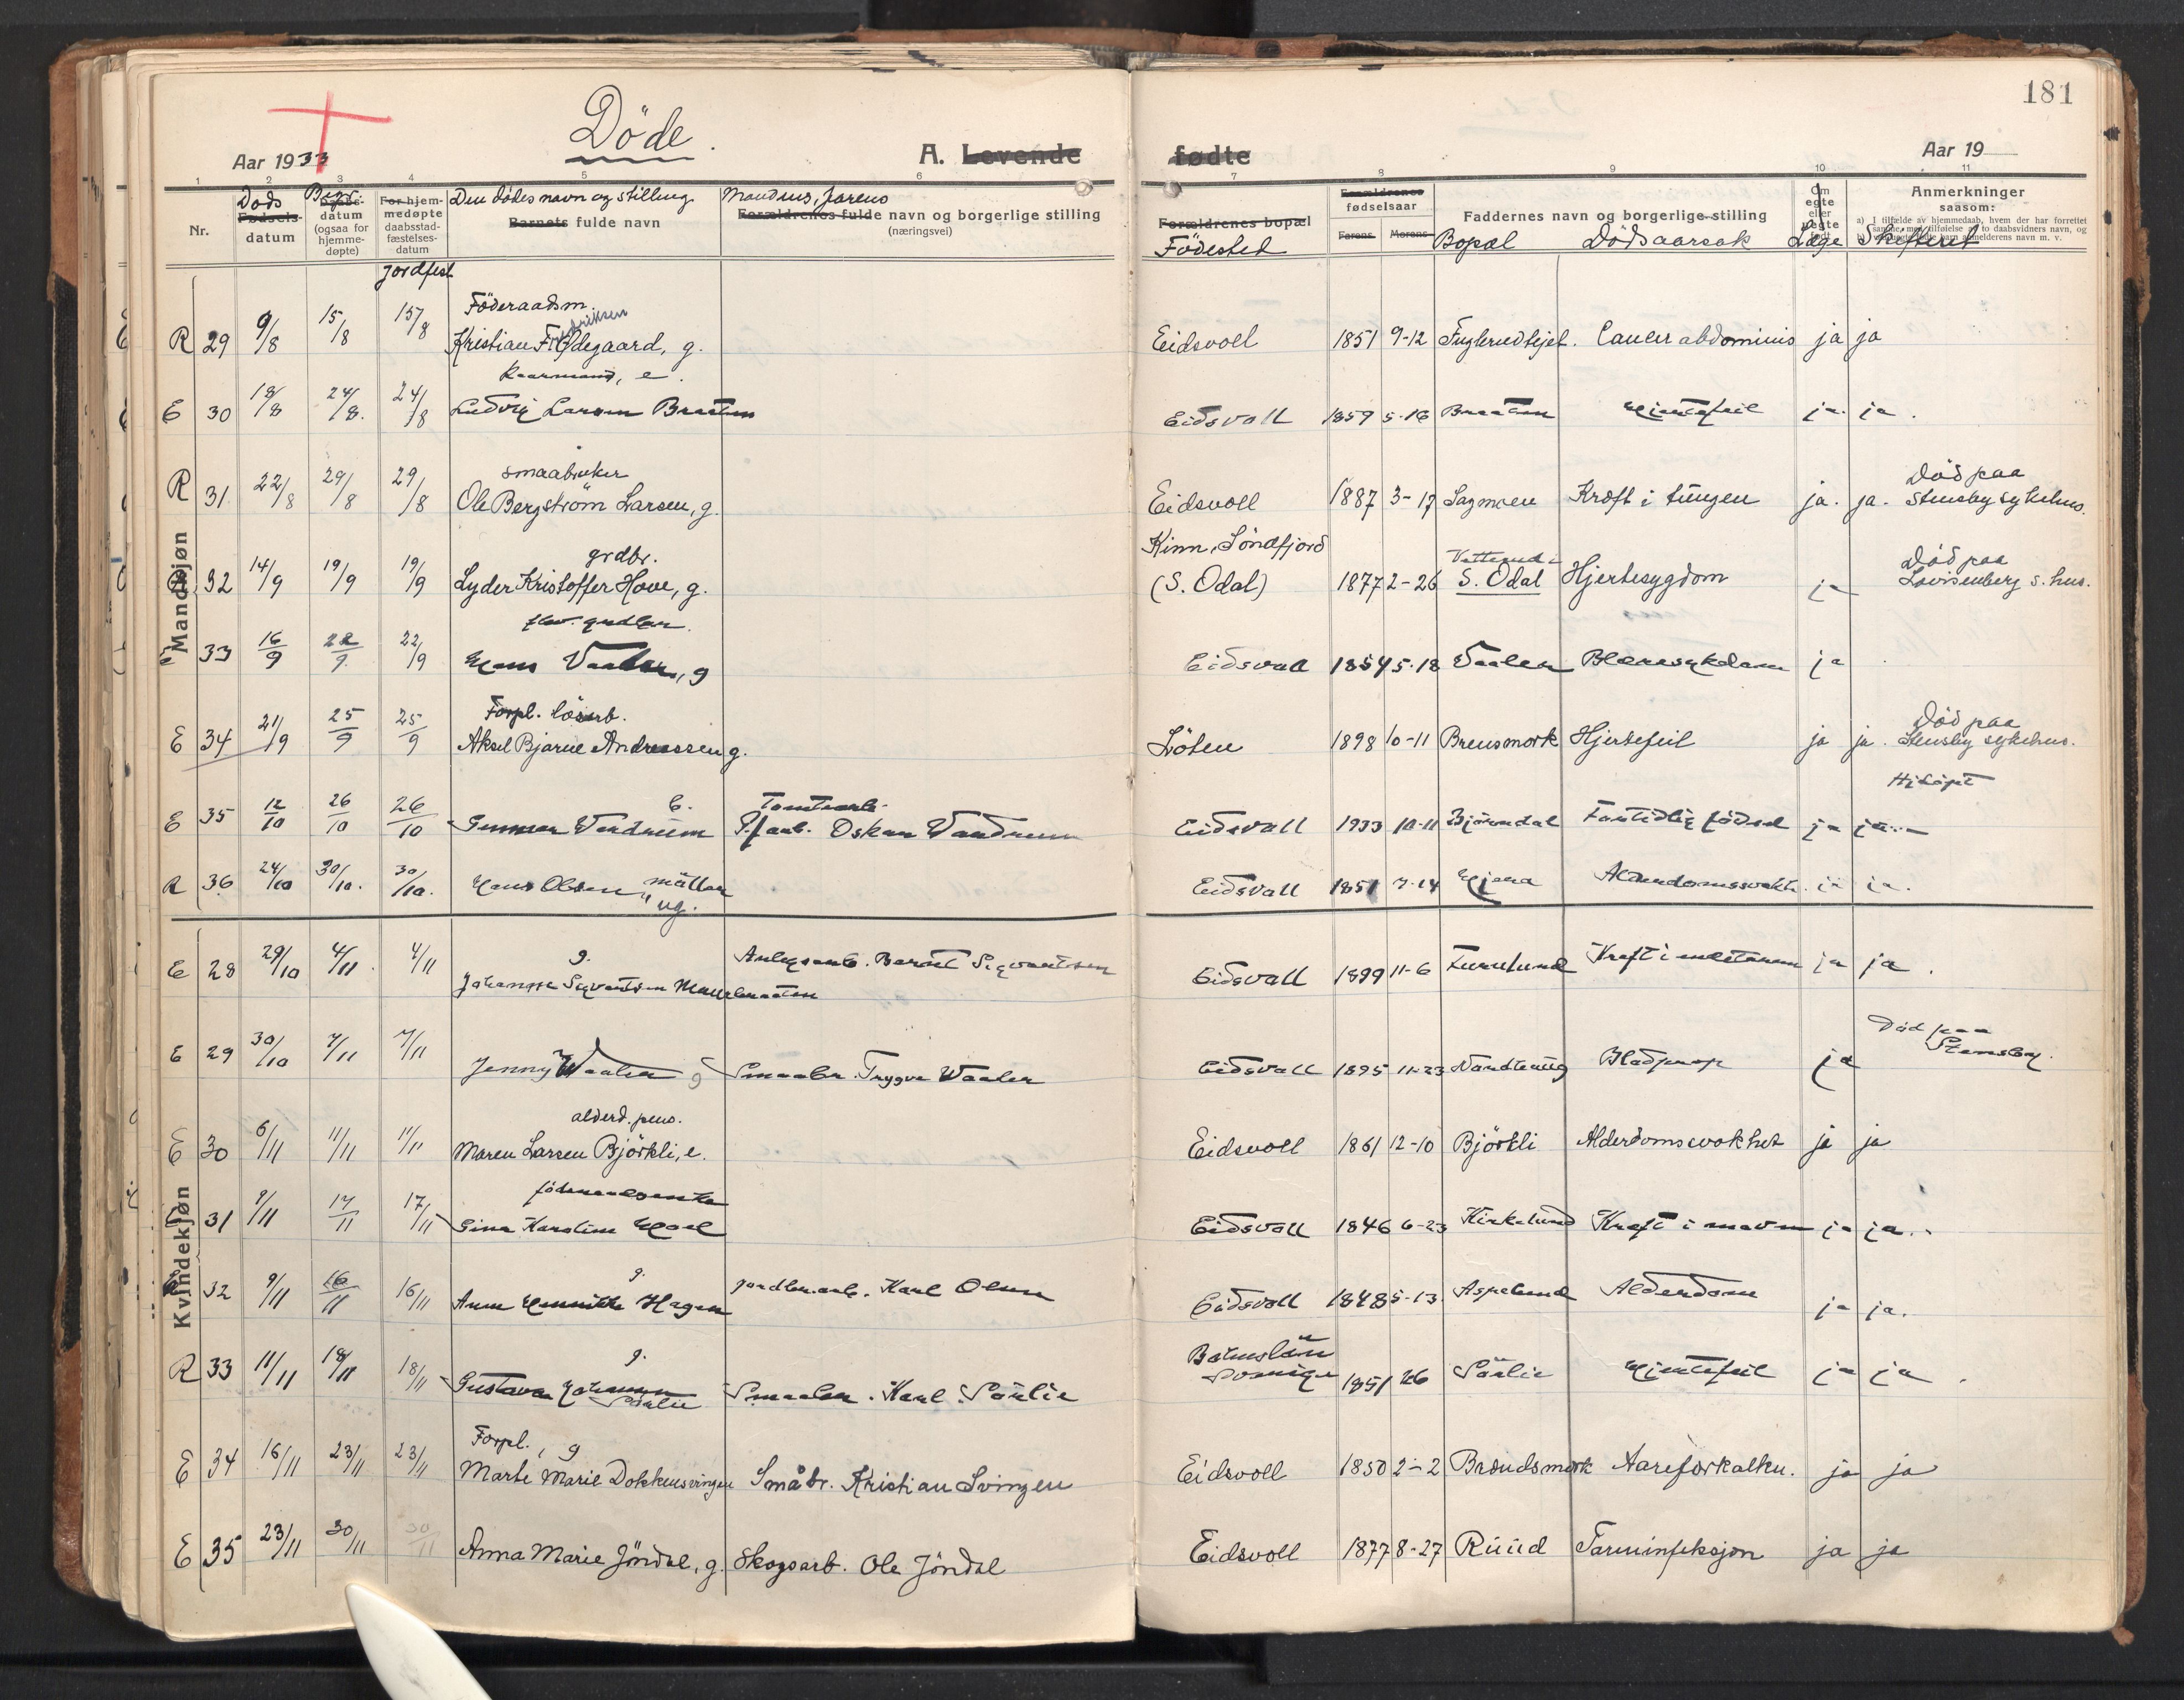 181
Døde.
Aar 1933
A. Levende
fødte
Aar 19
1 2 3 4 5 6 7 8 9 10 11
Nr.
Døds
Fødsels-
datum
Begr.
Daabs-
datum
(ogsaa for
hjemme-
døpte)
For hjem-
medøpte
daabsstad-
fæstelses-
datum
Jordfest
Den dødes navn og stilling
Barnets fulde navn
Mandens, farens
Forældrenes fulde navn og borgerlige stilling
(næringsvei)
Forældrenes bopæl
Födested
Forældrenes
fødselsaar
Farens Morens
Faddernes navn og borgerlige stilling
Bopæl Dødsaarsak
Om
egte
eller
uegte
født
Læge
Anmerkninger
saasom:
a) I tilfælde av hjemmedaab, hvem der har forrettet
samme med tilføielse av to daabsvidners navn, og
Skifteret
Mandkjøn
Föderaadsm.
R 29 9/8 15/8 15/8 Kristian Fredriksen Ødegaard, g. Eidsvoll 1851 9-12 Cancer abdominis ja ja
Kaarmand, e.
E 30 18/8 24/8. 24/8 Ludvig Larsen Braaten Eidsvoll 1859 5-16 Braaten Hjertefeil ja. ja.
smaabruker
Död paa
R 31. 22/8 29/8 29/8 Ole Bergström Larsen, g. Eidsvoll 1887 3-17 Sagmoen Kræft i tungen ja. ja. Stensby sykehus.
grdbr. Kinn, Söndfjord
Död paa
32 14/9 19/9 19/9 Lyder Kristoffer Hove, g. (S. Odal) 1877 2-26 S. Odal Hjertesygdom ja Lovisenberg s. hus.
33 16/9 22/9 22/9 Hans Vaaler, g Eidsvoll 1854 5-18 Vaaler Blæresykdom ja
Forpl. lösarb.
Död paa
E 34 21/9 25/9 25/9 Aksel Bjarne Andreassen g. Löten 1898 10-11 Brensmork Hjertefeil ja ja. Stensby sykehus.
b. Tomtearb.
Hjdöpt
E 35 12/10 26/10 26/10 Gunnar Vandrum Oskar Vandrum Eidsvoll 1933 10-11 Björndal Fortidlig födsel ja ja.
R 36 24/10 30/10. 30/10. Hans Olsen, ug. Eidsvoll 1851 7-14 Alderdomssvakh. ja ja.
Kvindekjøn
g.
E 28 29/10 4/11. 4/11 Anlegsarb. Eidsvoll 1899 11-6 Furulund Kræft i ja ja.
Död paa
E 29 30/10 7/11 7/11 Jenny Waaler g Smaabr. Trygve Waaler Eidsvoll 1895 11-23 Blodprop ja Stensby.
alderd. pens.
E 30 6/11 11/11 11/11 Maren Larsen Björkli, e. Eidsvoll 1861 12-10 Björkli Alderdomssvakhet ja ja
31 9/11 17/11 17/11 Gina Karoline Eidsvoll 1846 6-23 Kirkelund Kræft i maven ja ja.
g.
32 9/11 16/11 16/11 Anne Henrikke Hagen jordbr.arb. Karl Olsen Eidsvoll 1848 5-13 Aspelund Alderdom ja ja.
g.
R 33 11/11 18/11 18/11 Gustava Johanne Sörlie Smaabr. Karl Sörlie Sverige 1851 Sörlie Hjertefeil ja ja.
Forpl., g
E 34 16/11 23/11 23/11 Marte Marie Dokkensvingen Småbr. Kristian Svingen Eidsvoll 1850 2-2 Brændsmork Aareforkalkn. ja ja
E 35 23/11 30/11 30/11 Anna Marie Jöndal, g. Skogsarb. Ole Jöndal Eidsvoll 1877 8-27 Ruud Tarminfeksjon ja ja